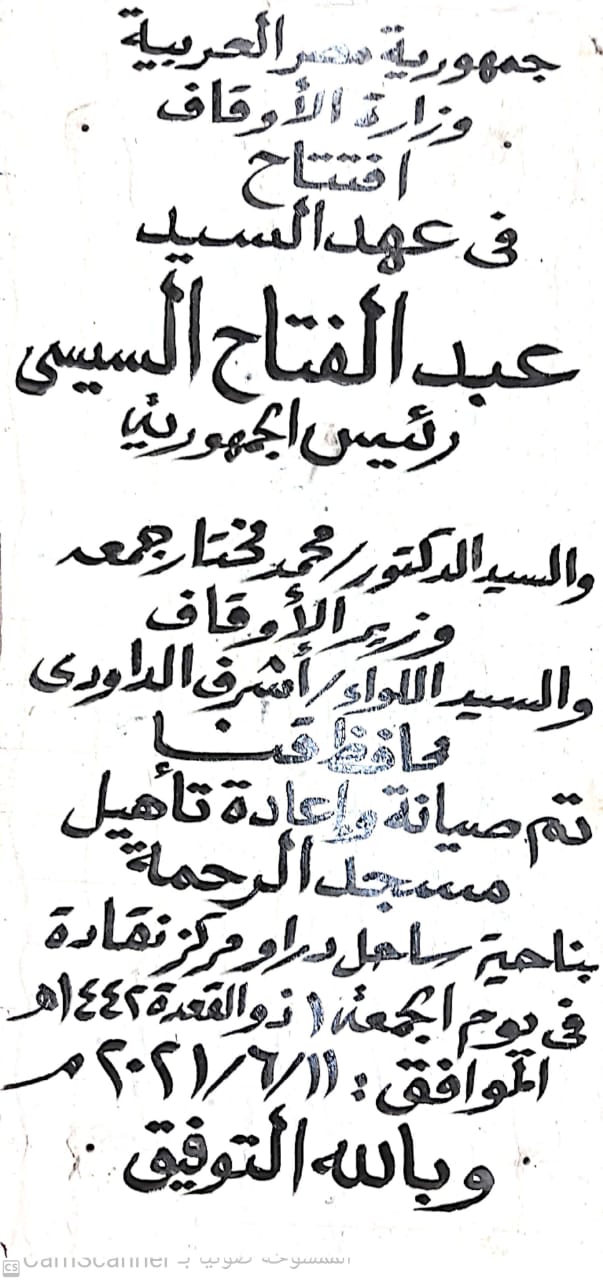 جمهورية مصر العربية
وزارة الأوقاف
افتتاح
فى عهد السيد
عبد الفتاح السيسى
رئيس الجمهورية
والسيد الدكتور/محمد مختار جمعه
وزير الأوقاف
والسيد اللواء/أشرف الداودى
محافظ قنا
تم صيانة وإعادة تأهيل
مسجد الرحمة
بناحية ساحل دراو مركز نقادة
فى يوم الجمعة ١ ذو القعدة ١٤٤٢هـ
الموافق: ٢٠٢١/٦/١١ م
وبالله التوفيق
CS الممسوحة ضوئيا بـ CamScanner